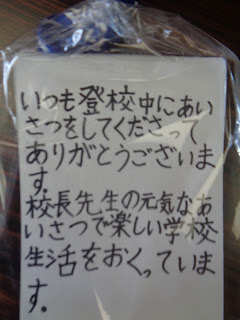 いつも登校中にあい
さつをしてくださって
ありがとうございま
す.
校長先生の元気なあ
いさつで楽しい学校
生活をおくっていま
す.